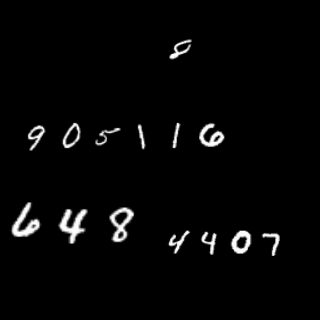 8
905116
648
4407